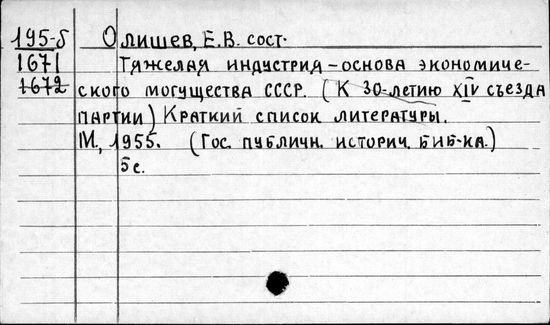 195-б Олишев, Е.В. сост.
1671 Тяжелая индустрия – основа экономиче-
1672 ского могущества СССР. (К 30-летию XIV съезда
партии) Краткий список литературы.
М., 1955. (Гос. публичн. историч. биб-ка.)
5 с.